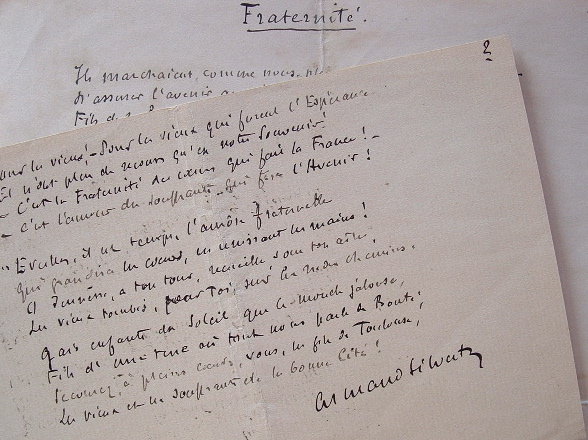 Fraternité.
Ils marchaient, comme nous,
d'assurer l'avenir
Fils de
2
pour les vieux! - Pour les vieux qui furent l'Espérance
n'ont plus de recours qu'en notre Souvenir!
- C'est la Fraternité des cœurs qui fait la France! -
- C'est l'amour du souffrant qui fera l'Avenir!
il est temps, l'amour fraternelle
Qui grandira les cœurs, en unissant les mains!
Et a ton tour, recueille sous ton aile
Les vieux tombés, pour toi, sur les rudes chemins.
Gais enfants du Soleil que le monde jalouse,
Fils de une terre où tout nous parle de Bonté,
Secourez, à pleins cœurs, vous, les fils de Toulouse,
Les vieux et les souffrants de la bonne Cité!
Armand Silvestre